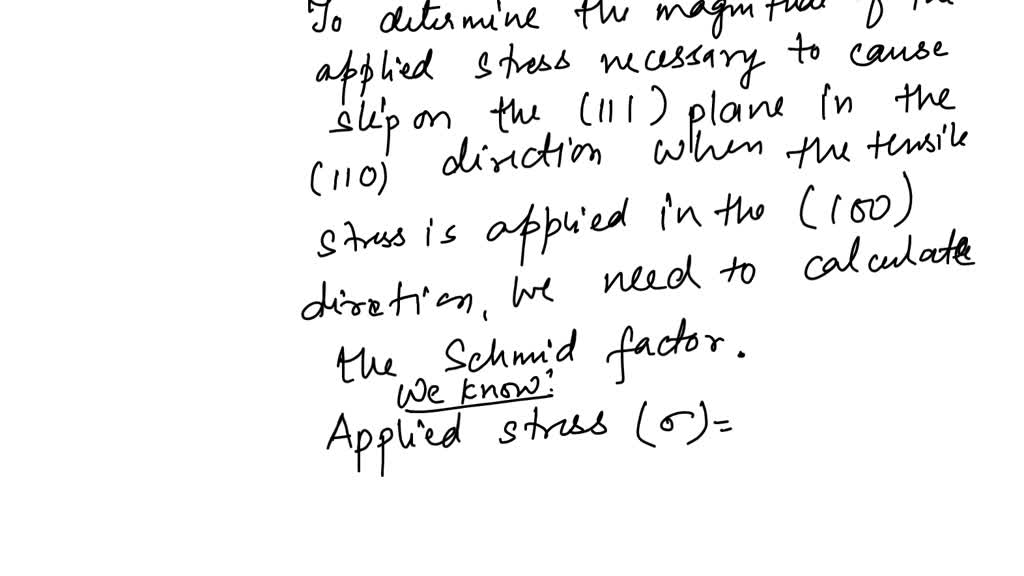 To determine the magnitude of the
applied stress necessary to cause
slip on the (111) plane in the
(110) direction when the tensile
stress is applied in the (100)
direction, we need to calculate
the Schmid factor.
We know:
Applied stress (σ)=